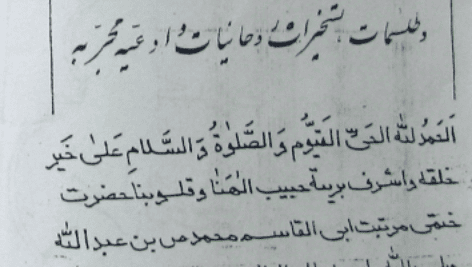 و طلسمات ، تسخیرات روحانیات و ادعیه مجربه
اَلحَمدُ لِلّٰه الحَیِّ القَیُّوم وَ الصَّلوٰةُ وَ السَّلامِ عَلیٰ خَیرِ
خلقه و اشرف بریته حبیب الٰهنا و قلوبنا حضرت
ختمی مرتبت ابی القاسم محمد ص بن عبد اللّٰه